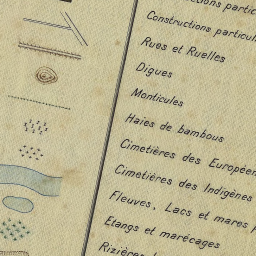 Constructions particul
Rues et Ruelles
Digues
Monticules
Haies de bambous
Cimetières des Européen
Cimetières des Indigènes
Fleuves, Lacs et mares
Etangs et marécages
Rizières